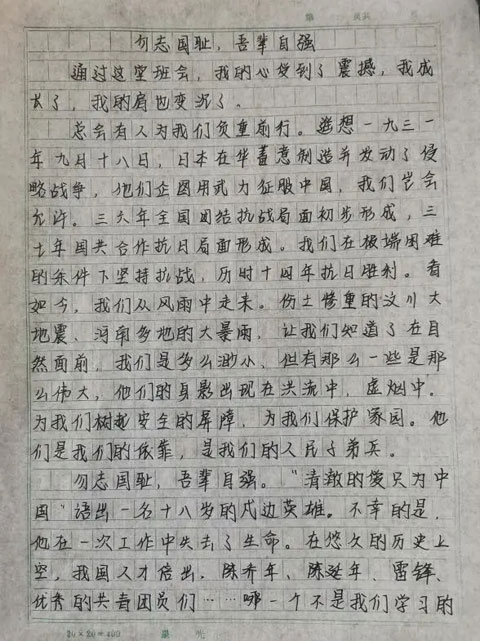 勿志国耻，吾辈自强
通过这堂班会，我的心受到了震撼，我成
长了，我的肩也变沉了。
总会有人为我们负重前行。遥想一九三一
年九月十八日，日本在华蓄意制造并发动了侵
略战争，他们企图用武力征服中国，我们岂会
允许。三六年全国团结抗战局面初步形成，三
七年国共合作抗日局面形成。我们在极端困难
的条件下坚持抗战，历时十四年抗日胜利。看
如今，我们从风雨中走来。伤亡惨重的汶川大
地震、河南多地的大暴雨，让我们知道了在自
然面前，我们是多么渺小，但有那么一些是那
么伟大，他们的身影出现在洪流中，虚烟中。
为我们树起安全的屏障，为我们保护家园。他
们是我们的依靠，是我们的人民子弟兵。
勿志国耻，吾辈自强。“清澈的爱只为中
国”语出一名十八岁的戍边英雄。不幸的是，
他在一次工作中失去了生命。在悠久的历史上
空，我国人才倍出，陈乔年、陈延年、雷锋、
优秀的共青团员们……哪一个不是我们学习的
20×20=400